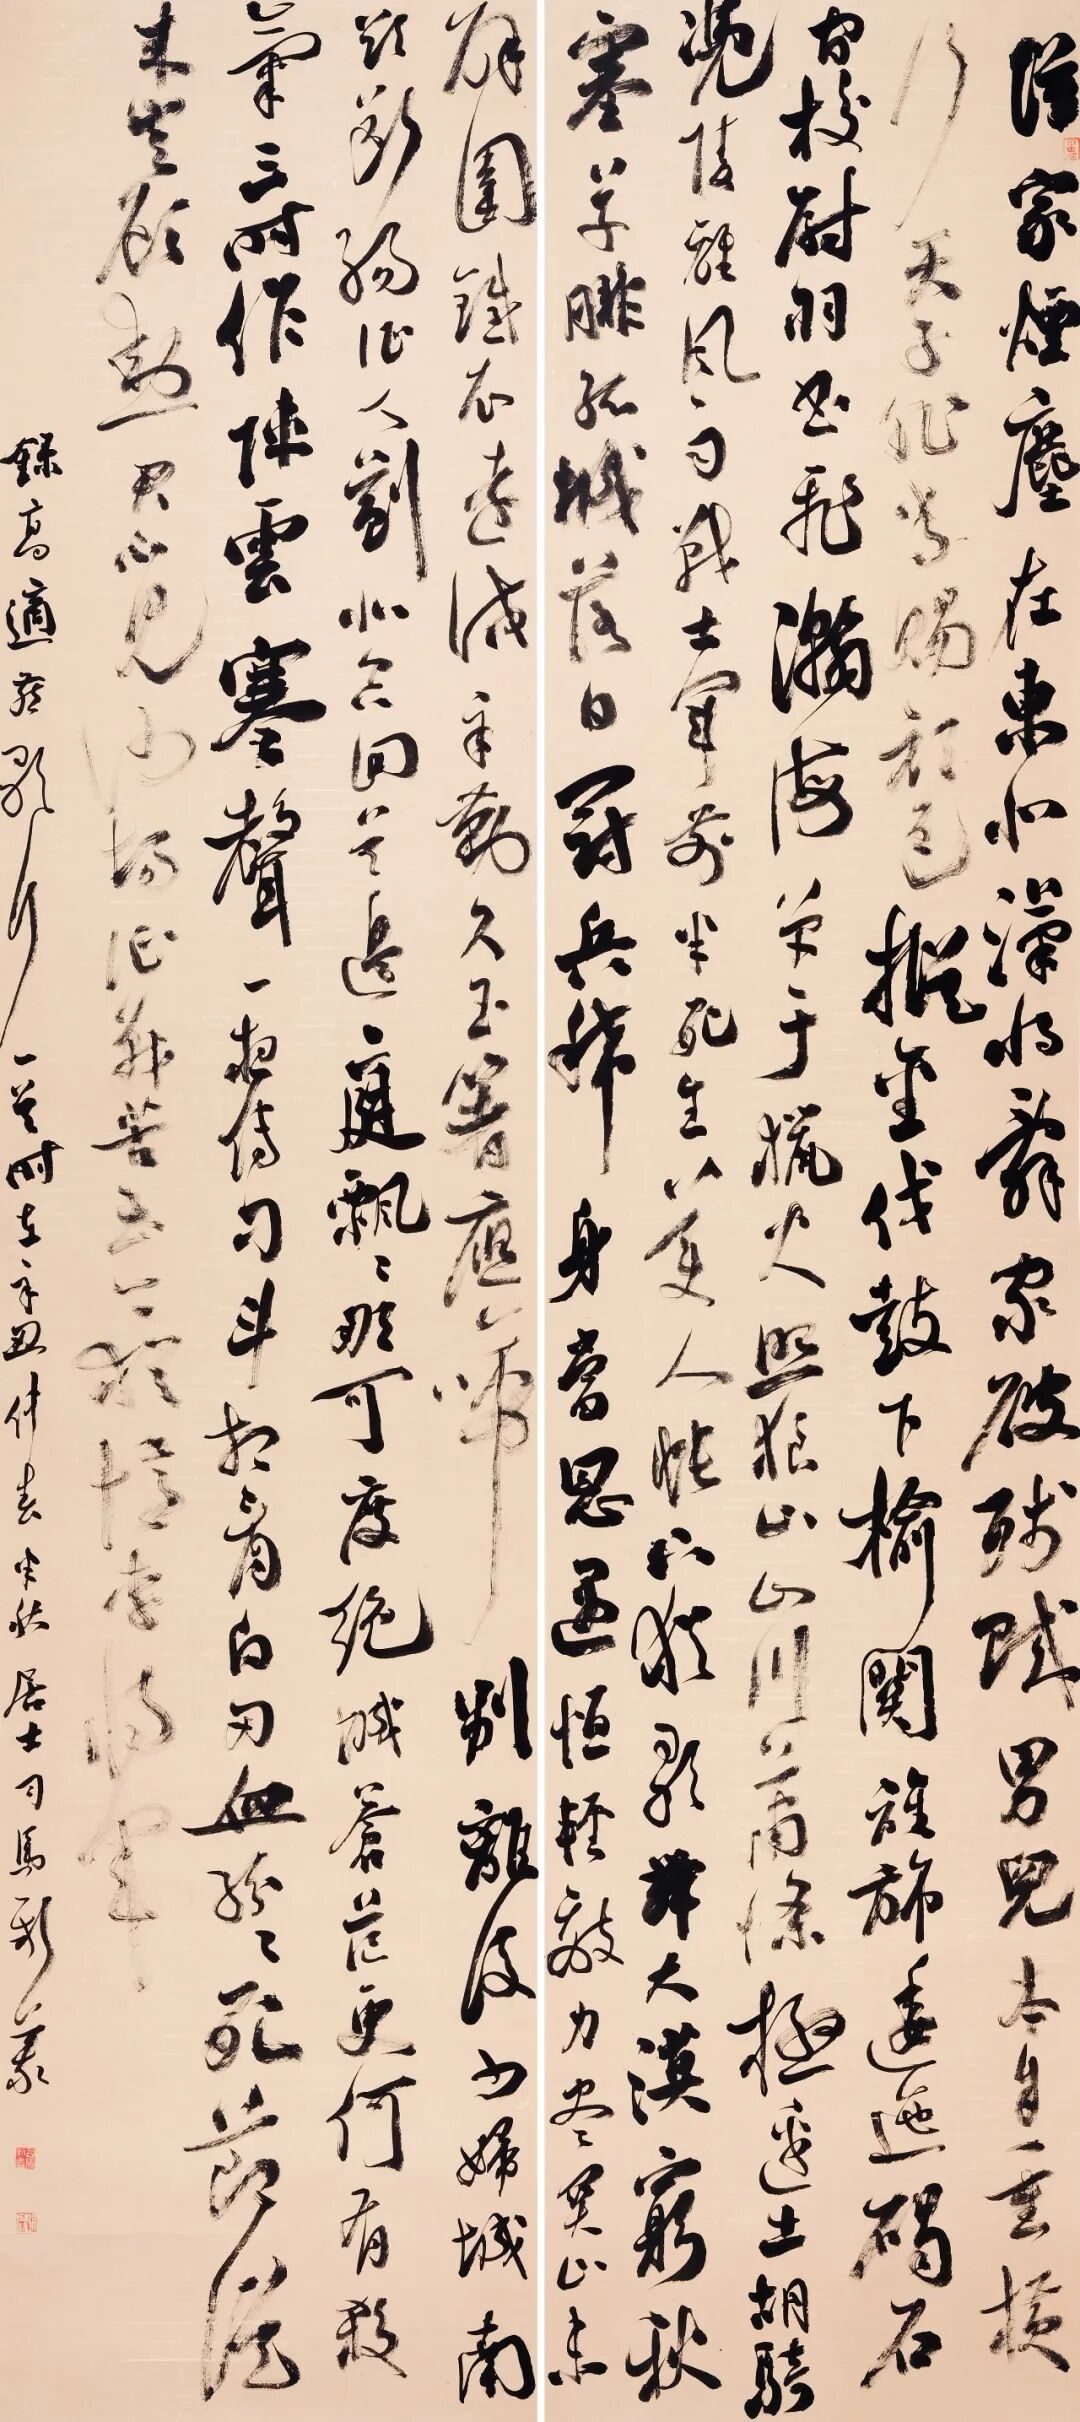 漢家煙塵在東北漢將辭家破殘賊男兒本自重橫
行天子非常賜顏色摐金伐鼓下榆關旌旆逶迤碣石
間校尉羽書飛瀚海單于獵火照狼山山川蕭條極邊土胡騎
憑陵雜風雨戰士軍前半死生美人帳下猶歌舞大漠窮秋
塞草腓孤城落日鬥兵稀身當恩遇恒輕敵力盡關山未
解圍鐵衣遠戍辛勤久玉箸應啼別離後少婦城南
欲斷腸征人薊北空回首邊庭飄〻那可度絕域蒼茫更何有殺
氣三時作陣雲寒聲一夜傳刁斗相看白刃血紛〻死節從
來豈顧勳君不見沙場征戰苦至今猶憶李將軍
錄高適燕歌行一首時在辛丑仲春半秋居士司馬